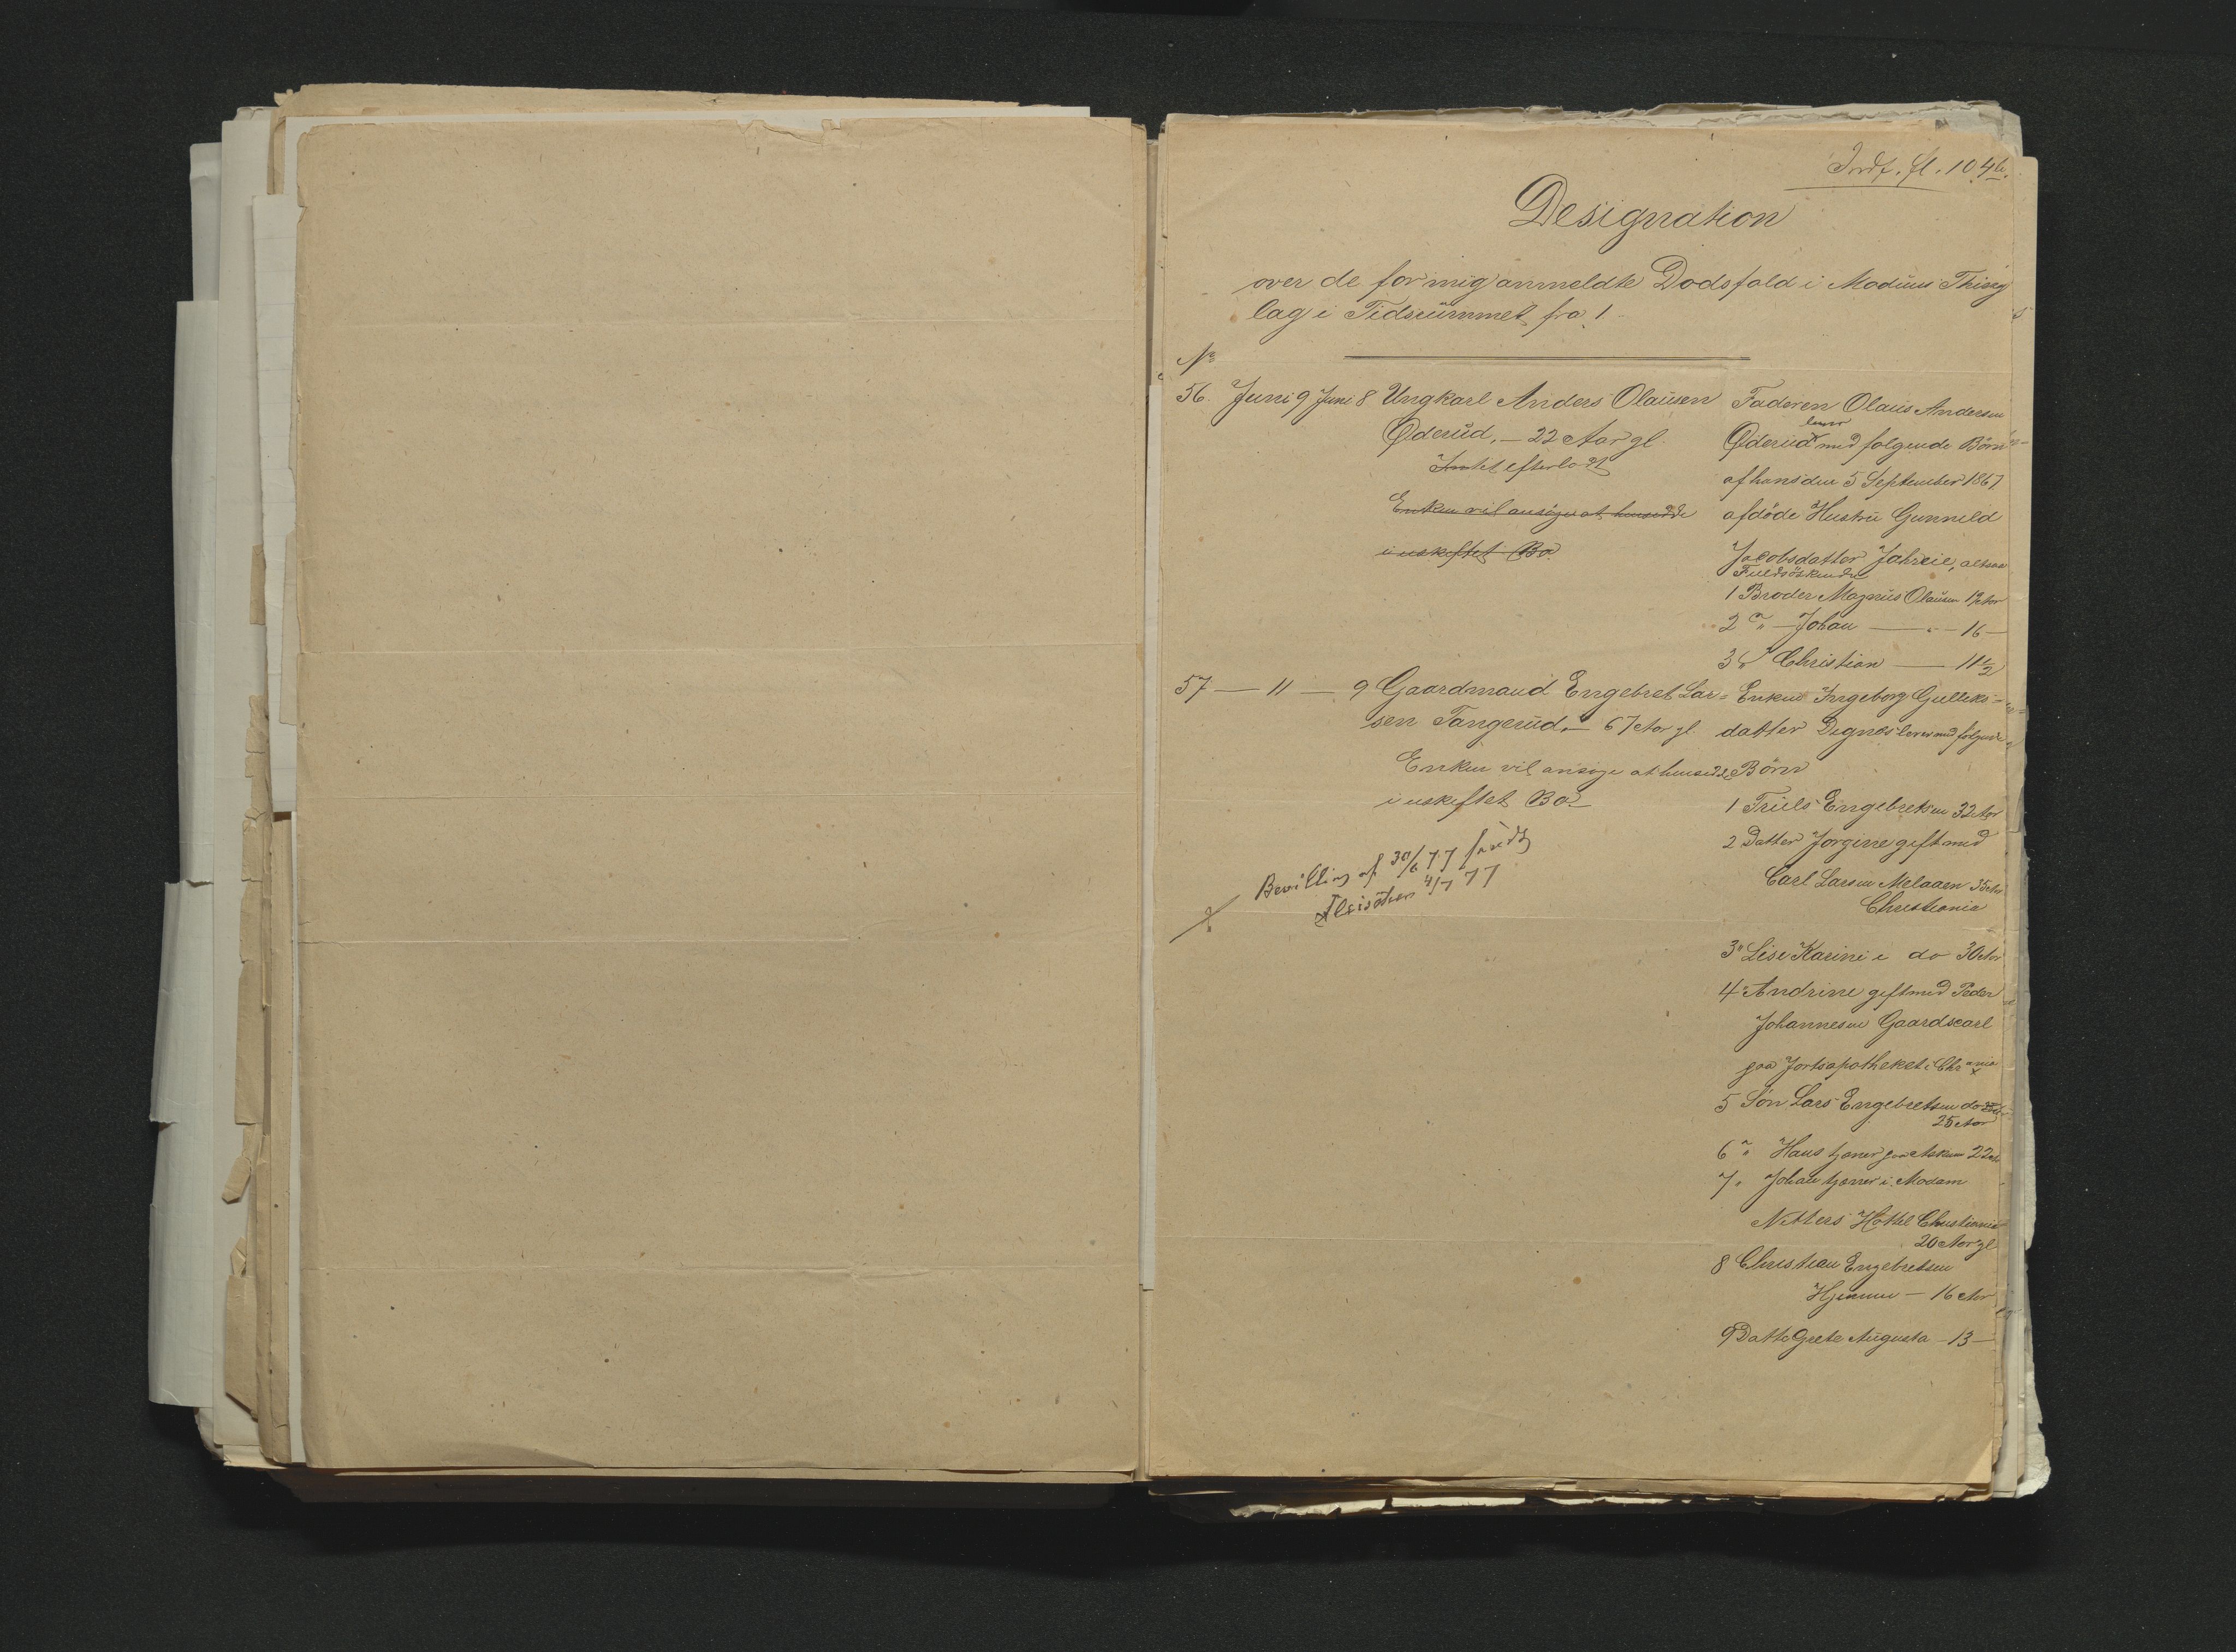 Indf. fl. 104b.
Designation
over de for mig anmeldte Dodsfald i Modums Thing
lag i Tidsrummet fra 1
No
56. Juni 9 Juni 8 Ungkarl Anders Olausen
Øderud, – 22 Aar gl.
Intet efterladt
Enken vil ansøge at hensidde
i uskiftet Bo
Faderen Olaus Andersen
lever
Øderud med folgende Börn
af hans den 5 September 1867
afdöde Hustru Gunnild
Jacobsdatter Jahreie, altsaa
Fuldsöskende
1 Broder Magnus Olausen 19 Aar
2 " – Johan — " – 16 –
3 " Christian — 11 1/2
57 — 11 — 9 Gaardmand Engebret Lar=
sen Tangerud, – 67 Aar gl.
Enken vil ansöge at hensidde
i uskiftet Bo
Bevilling af 30/6 77 sendt
4/7 77
Enken Ingeborg Gulleks=
datter Degnes lever med folgende
Börn
1 Truls Engebretsen 32 Aar
2 Datter Jorgine gift med
Carl Larsen Melaaen 35 Aar
Christiania
3 " Lise Karine i do 30 Aar
4 " Andrine gift med Peder
Johannesen Gaardscarl
paa Jortsapotheket i Chr ania
5 Sön Lars Engebretsen do
25 Aar
6 " Hans tjener paa Askum 22 Aar
7 " Johan tjener i Madam
Netters Hottel Christiania
20 Aar gl
8 Christian Engebretsen
Hjemme – 16 Aar
9 Datte Grete Augusta – 13 –